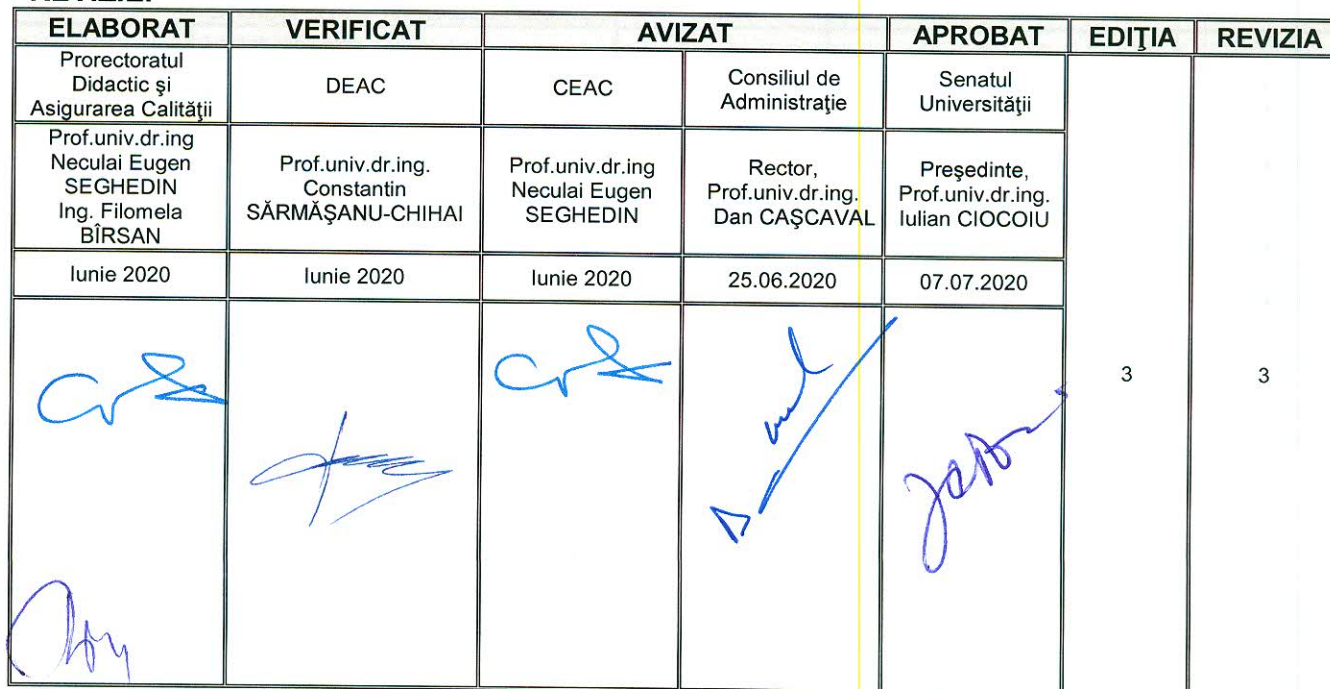 ELABORAT VERIFICAT AVIZAT APROBAT EDIŢIA REVIZIA
Prorectoratul
Didactic şi
Asigurarea Calităţii
DEAC
CEAC
Consiliul de
Administraţie
Senatul
Universităţii
Prof.univ.dr.ing
Neculai Eugen
SEGHEDIN
Ing. Filomela
BÎRSAN
Prof.univ.dr.ing.
Constantin
SĂRMĂŞANU-CHIHAI
Prof.univ.dr.ing
Neculai Eugen
SEGHEDIN
Rector,
Prof.univ.dr.ing.
Dan CAŞCAVAL
Preşedinte,
Prof.univ.dr.ing.
Iulian CIOCOIU
Iunie 2020 Iunie 2020 Iunie 2020 25.06.2020 07.07.2020
3 3